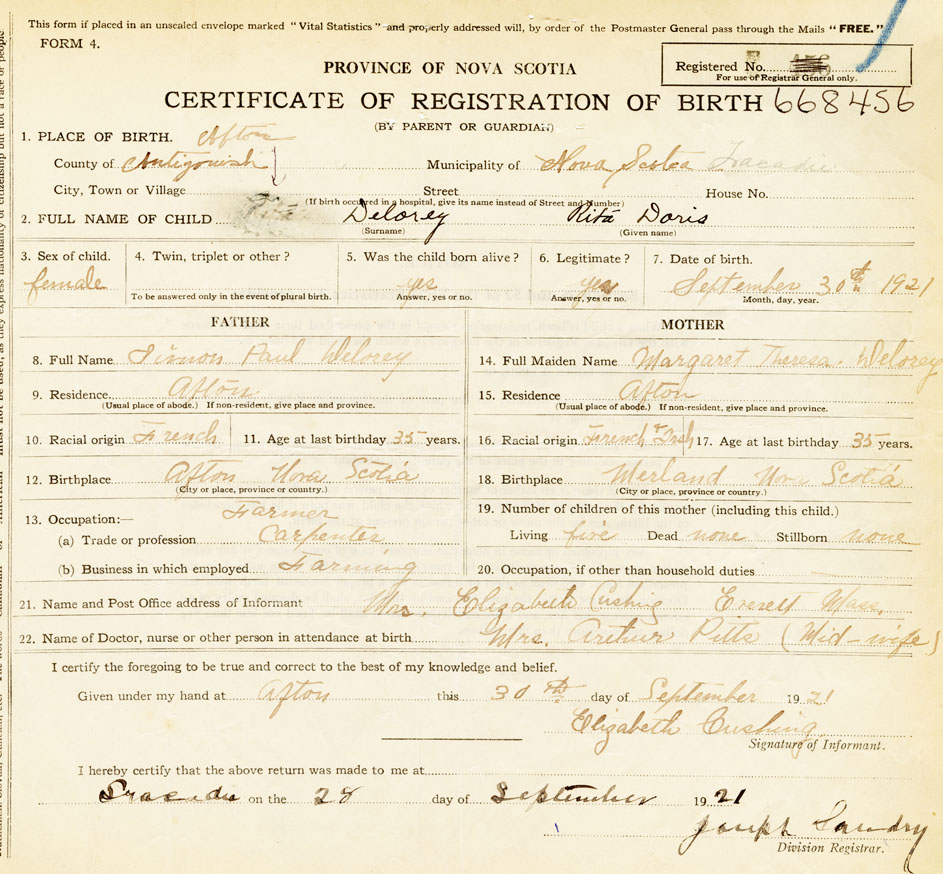 This form if placed in an unsealed envelope marked "Vital Statistics" and properly addressed will, by order of the Postmaster General pass through the Mails "FREE."
FORM 4.
Registered No.
For use of Registrar General only.
PROVINCE OF NOVA SCOTIA
CERTIFICATE OF REGISTRATION OF BIRTH 668456
(BY PARENT OR GUARDIAN)
1. PLACE OF BIRTH. Afton
County of Antigonish Municipality of Nova Scotia Tracadie
City, Town or Village Street House No.
(If birth occurred in a hospital, give its name instead of Street and Number)
2. FULL NAME OF CHILD Delorey Rita Doris
(Surname) (Given name)
3. Sex of child. 4. Twin, triplet or other? 5. Was the child born alive? 6. Legitimate? 7. Date of birth.
female yes yes September 30th 1921
To be answered only in the event of plural birth. Answer, yes or no. Answer, yes or no. Month, day, year.
FATHER MOTHER
8. Full Name Simon Paul Delorey 14. Full Maiden Name Margaret Theresa Delorey
9. Residence Afton 15. Residence Afton
(Usual place of abode.) If non-resident, give place and province. (Usual place of abode.) If non-resident, give place and province.
10. Racial origin French 11. Age at last birthday 35 years. 16. Racial origin French & Irish 17. Age at last birthday 35 years.
12. Birthplace Afton Nova Scotia 18. Birthplace Merland Nova Scotia
(City or place, province or country.) (City or place, province or country.)
13. Occupation:— Farmer 19. Number of children of this mother (including this child.)
(a) Trade or profession Carpenter Living five Dead none Stillborn none
(b) Business in which employed Farming 20. Occupation, if other than household duties
21. Name and Post Office address of Informant Mrs. Elizabeth Cushing Everett Mass.
22. Name of Doctor, nurse or other person in attendance at birth Mrs. Arthur Pitts (Mid-wife)
I certify the foregoing to be true and correct to the best of my knowledge and belief.
Given under my hand at Afton this 30th day of September 1921
Elizabeth Cushing
Signature of Informant.
I hereby certify that the above return was made to me at
Tracadie on the 28 day of September 1921
Joseph Landry
Division Registrar.